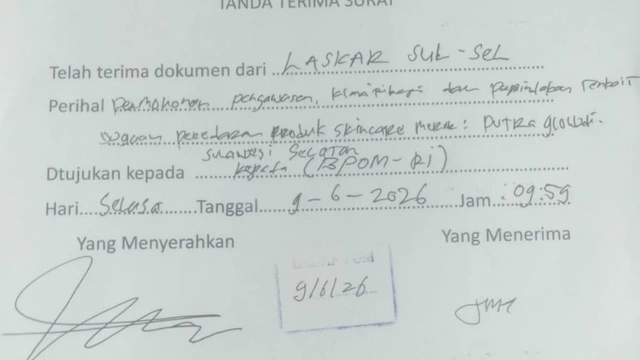 TANDA TERIMA SURAT
Telah terima dokumen dari LASKAR SUL-SEL
Perihal Permohonan pengawasan, klarifikasi dan penindakan terkait
dugaan peredaran produk skincare merek: PUTRI GLOW
SULAWESI SELATAN
Dtujukan kepada kepala (BPOM-RI)
Hari Selasa Tanggal 9-6-2026 Jam : 09:59
Yang Menyerahkan Yang Menerima
9/6/26